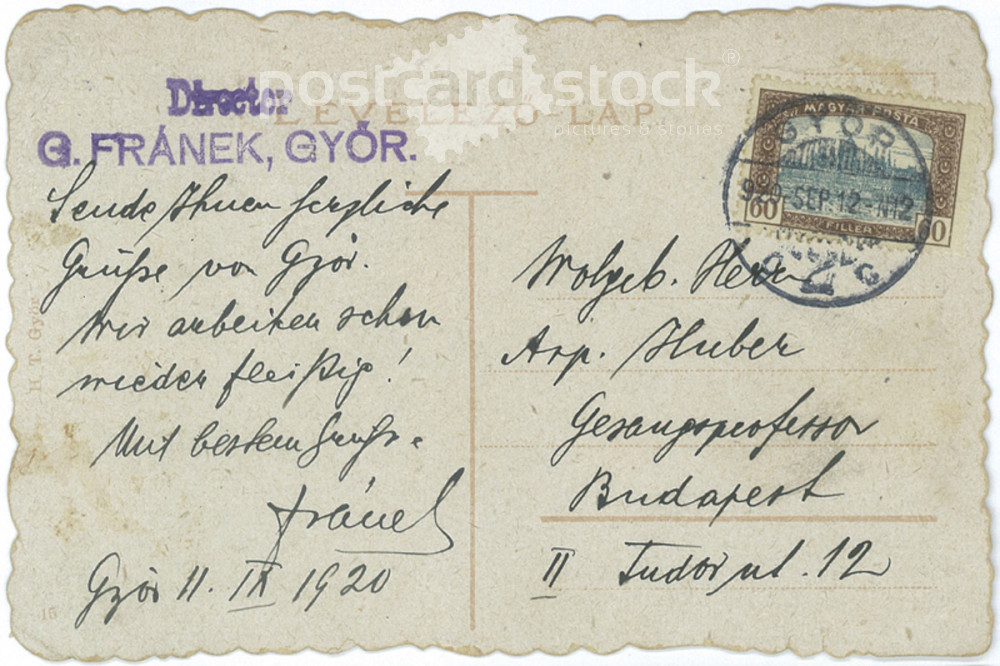 postcard stock®
pictures & stories
LEVELEZŐ-LAP
Director
G. FRÁNEK, GYŐR.
MAGYAR POSTA
60 FILLÉR 60
GYŐR
920 SEP. 12-N12
Sende Ihnen herzliche
Grüße von Györ.
Wir arbeiten schon
wieder fleißig!
Mit bestem Gruße
Fránek
Györ 11. IX 1920
Wolgeb. Herr
Arp. Huber
Gesangsprofessor
Budapest
II Tudor ut. 12
H. T. Győr
15